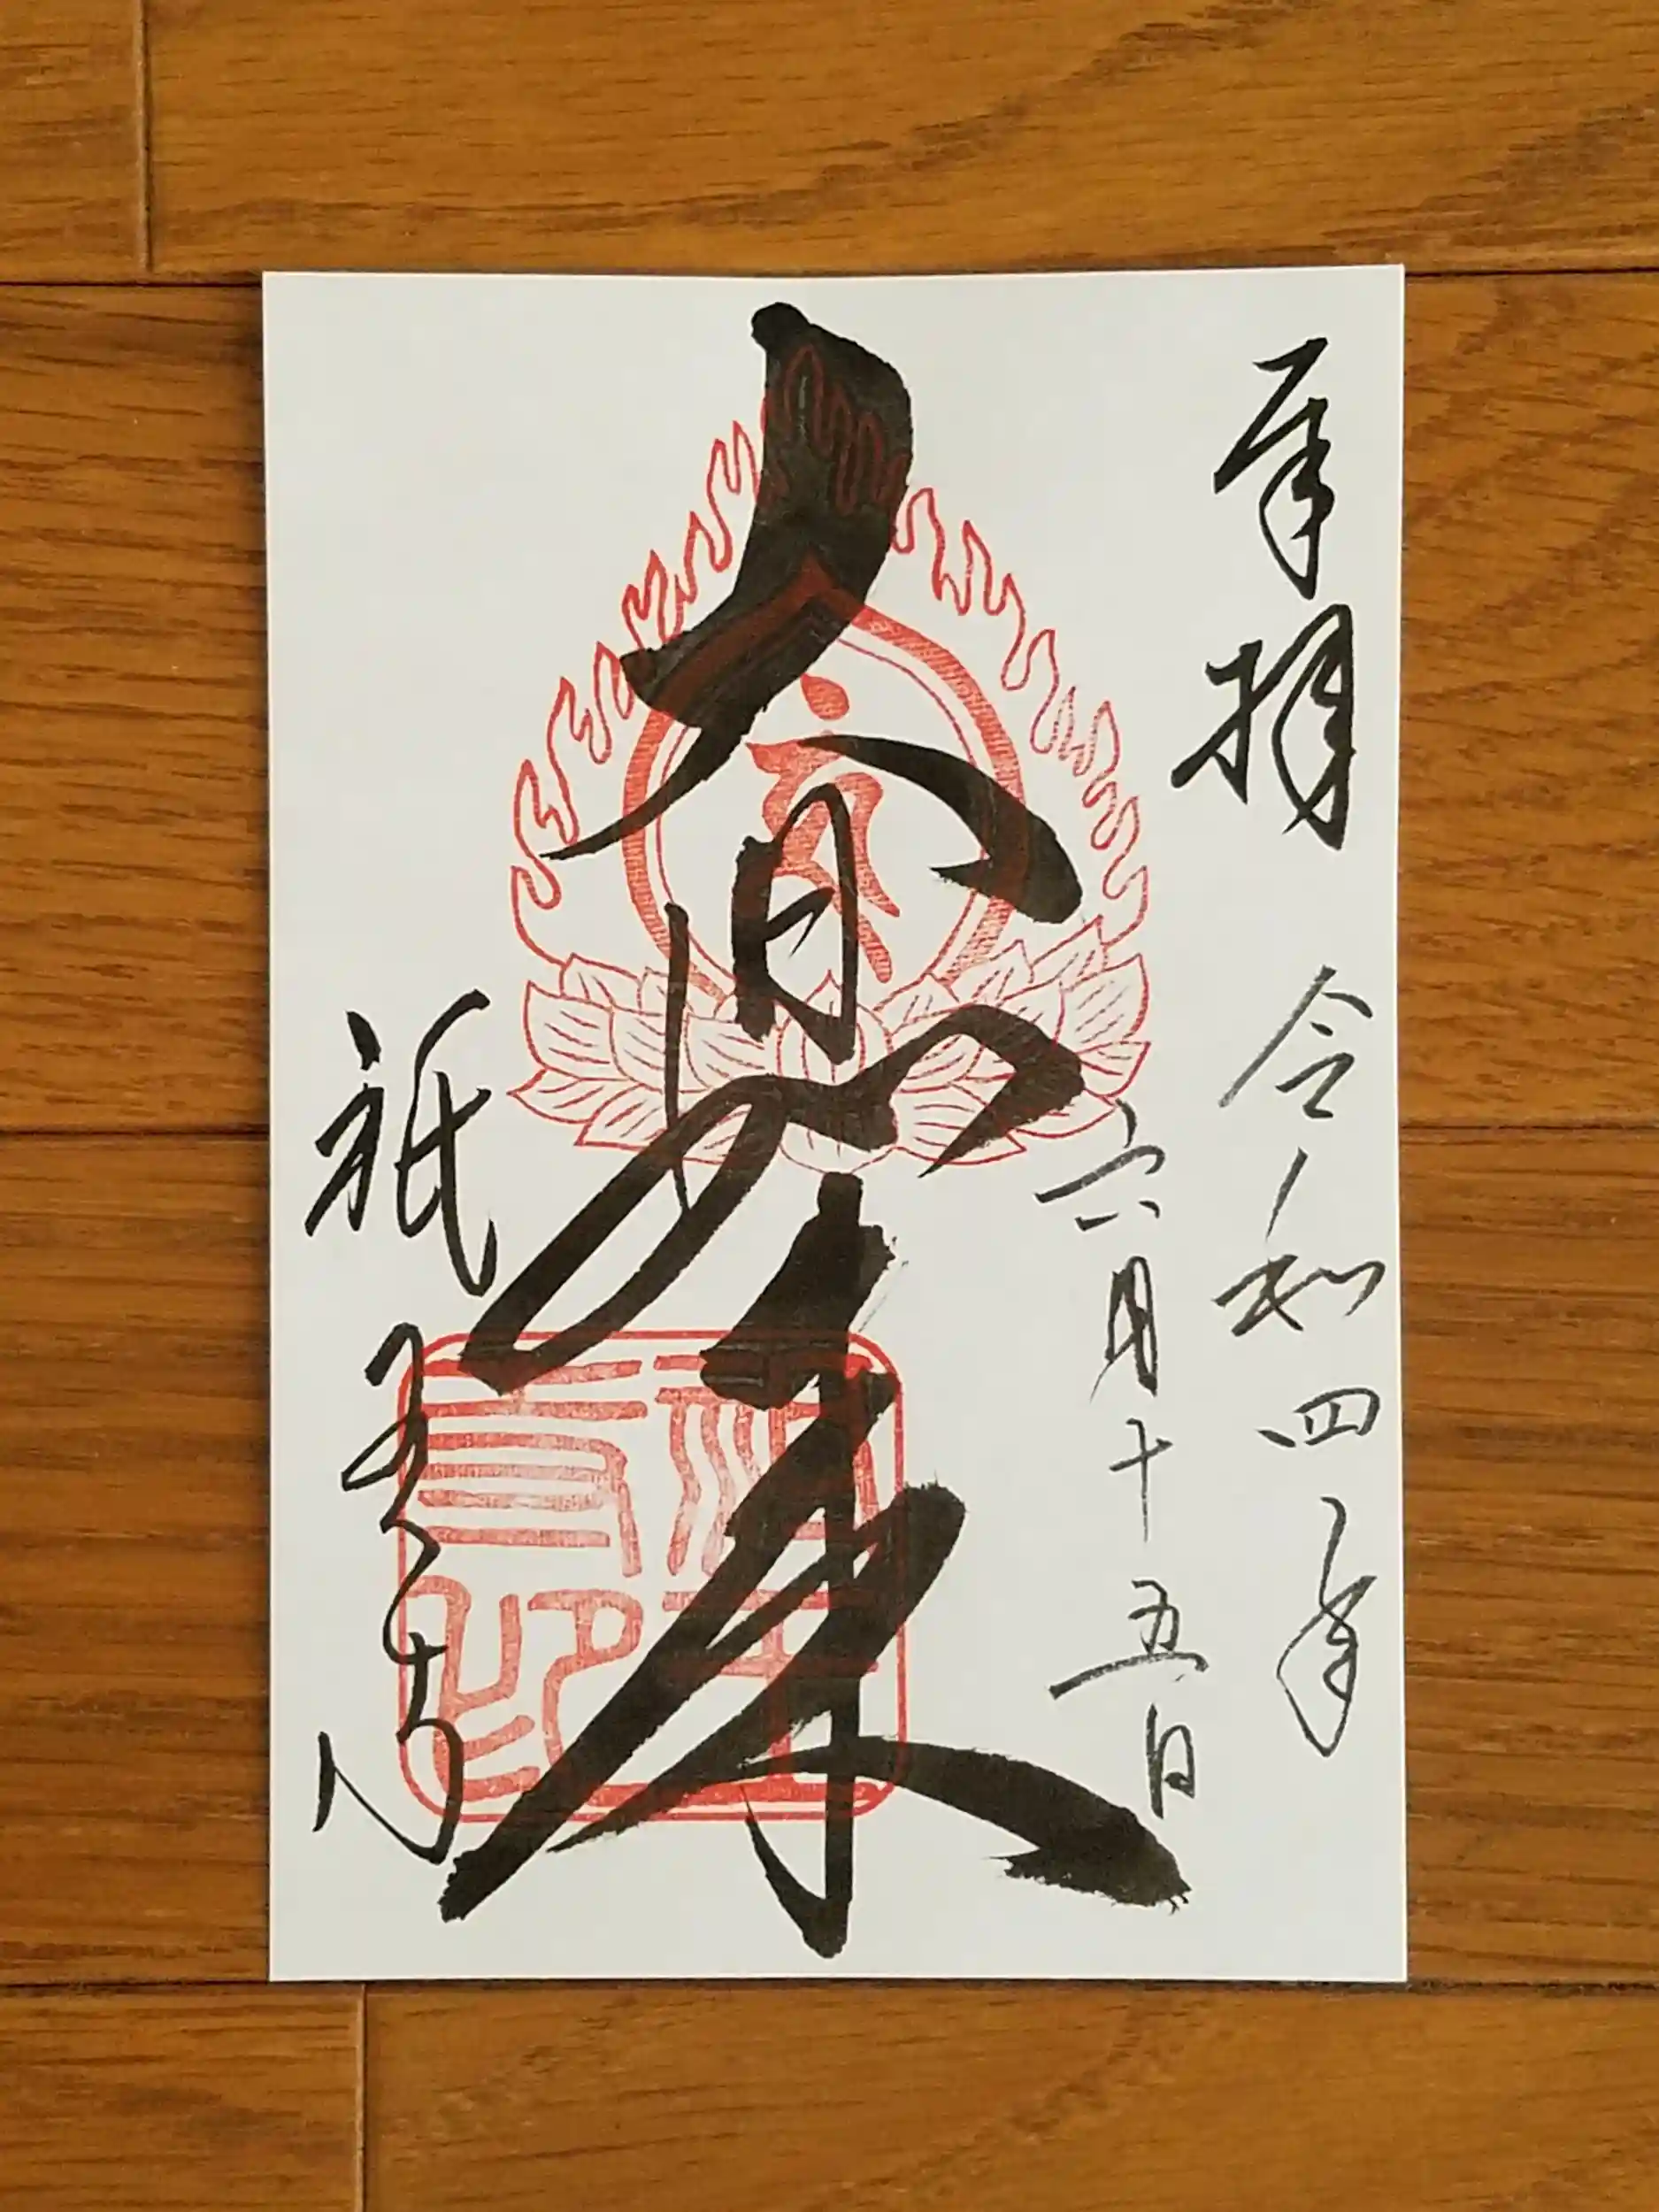 奉拝 令和四年
六月十五日
大日如来
祇王寺